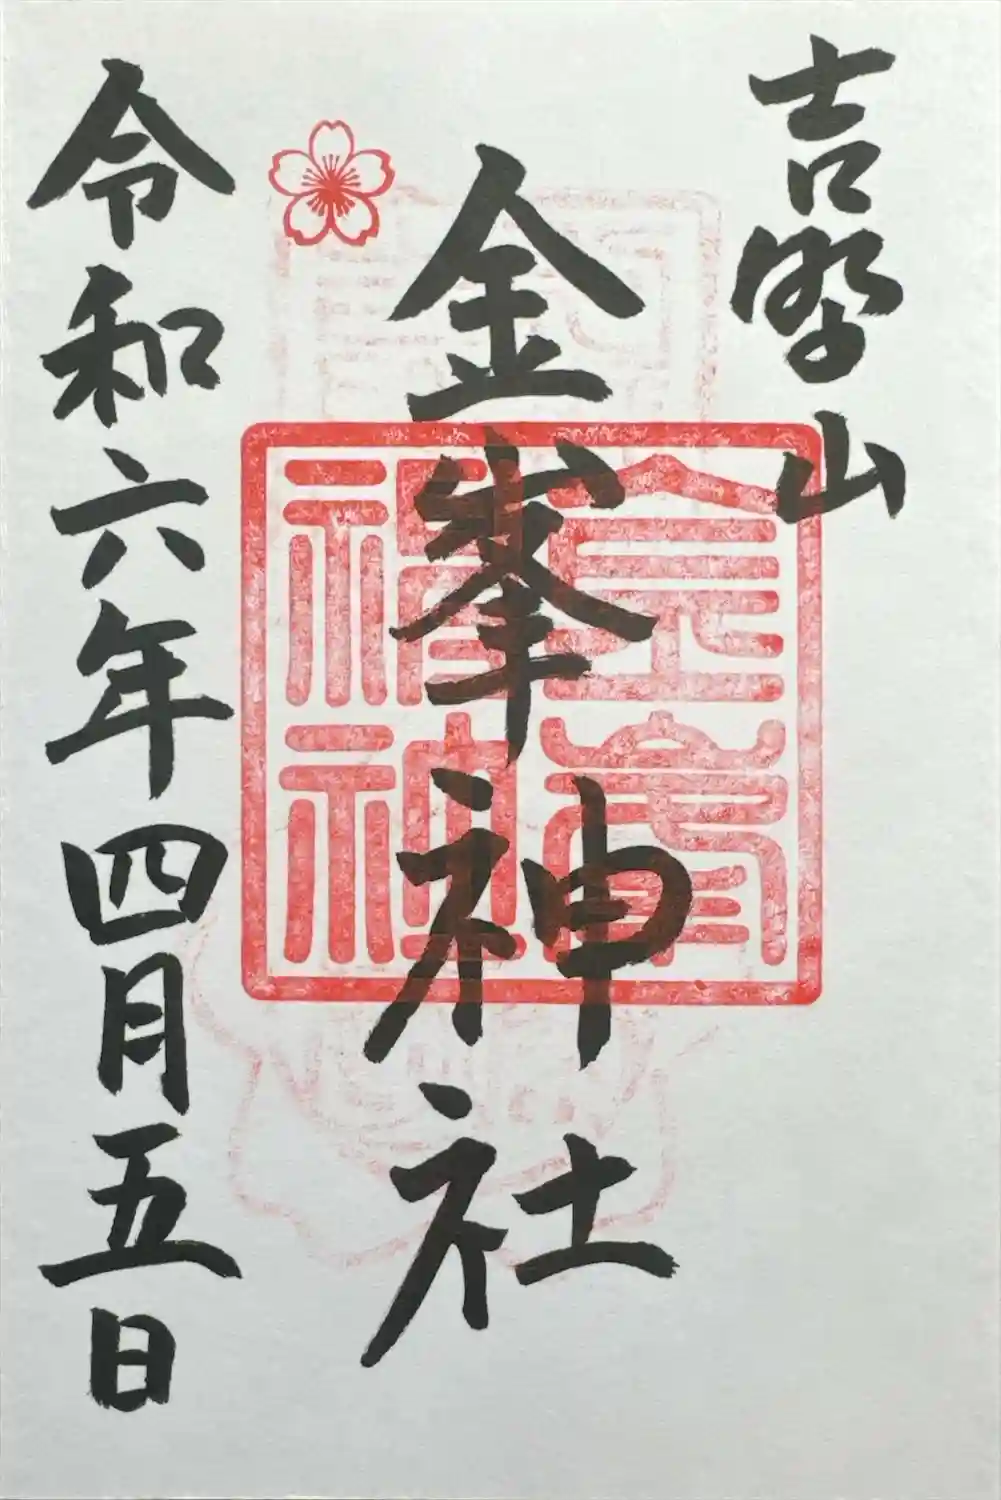 吉野山
金峯神社
令和六年四月五日
金峯
神社